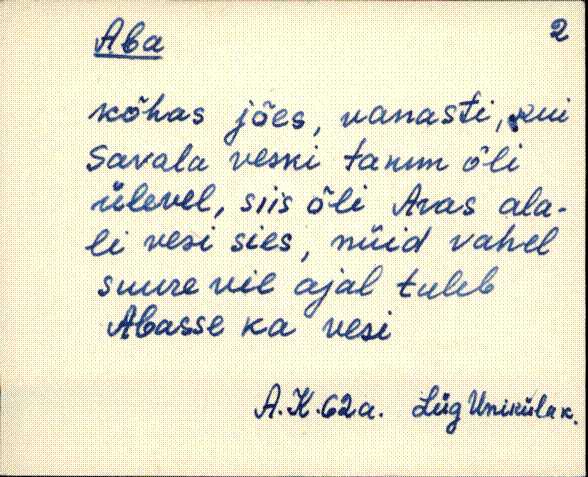 Aba 2
kõhas jões, vanasti, kui
Savala veski tamm õli
ülevel, siis õli Avas ala-
li vesi sies, nüid vahel
suure vie ajal tuleb
Abasse ka vesi
A.K. 62a. Lüg Uniküla k.